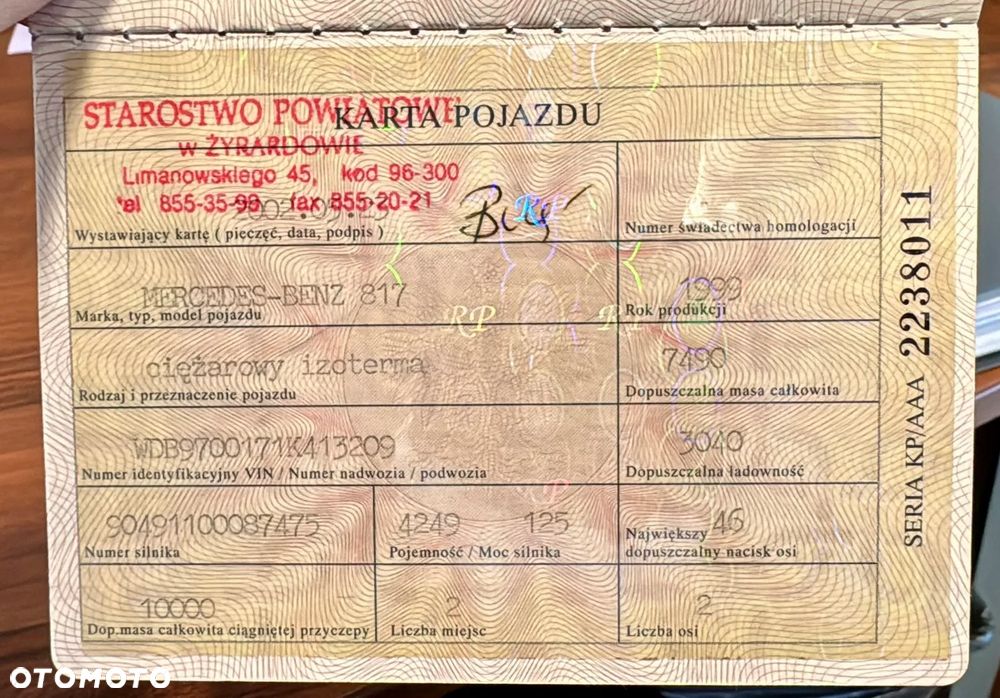 STAROSTWO POWIATOWE
KARTA POJAZDU
w ŻYRARDOWIE
Limanowskiego 45, kod 96-300
tel 855-35-99 fax 855-20-21
Wystawiający kartę ( pieczęć, data, podpis )
Numer świadectwa homologacji
MERCEDES-BENZ 817
Marka, typ, model pojazdu
1999
Rok produkcji
ciężarowy izoterma
Rodzaj i przeznaczenie pojazdu
7490
Dopuszczalna masa całkowita
WDB9700171K413209
Numer identyfikacyjny VIN / Numer nadwozia / podwozia
3040
Dopuszczalna ładowność
90491100087475
Numer silnika
4249 125
Pojemność / Moc silnika
46
Największy
dopuszczalny nacisk osi
10000
Dop.masa całkowita ciągniętej przyczepy
2
Liczba miejsc
2
Liczba osi
SERIA KP/AAA 2238011
RP
RP
RP
RP
OTOMOTO